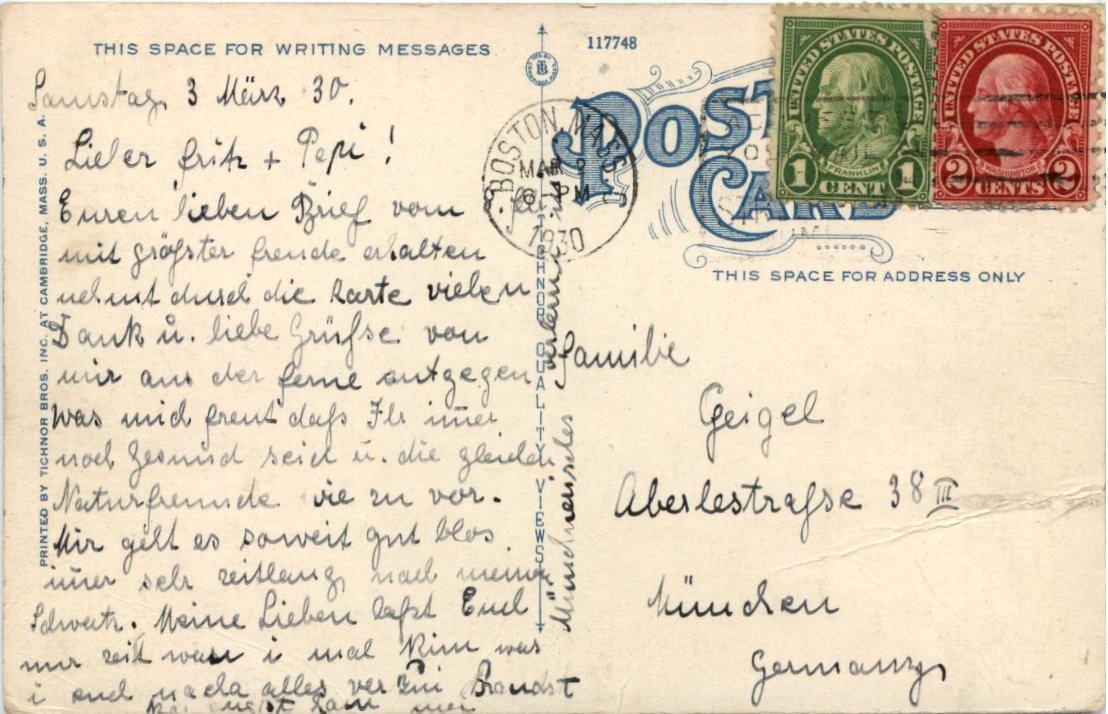 THIS SPACE FOR WRITING MESSAGES
117748
POST CARD
THIS SPACE FOR ADDRESS ONLY
UNITED STATES POSTAGE
FRANKLIN
1 CENT 1
UNITED STATES POSTAGE
WASHINGTON
2 CENTS 2
BOSTON, MASS.
MAR 3
6 PM
1930
PRINTED BY TICHNOR BROS. INC. AT CAMBRIDGE, MASS. U. S. A.
TICHNOR QUALITY VIEWS
Samstag, 3 März 30.
Lieber Fritz + Pepi!
Euren lieben Brief vom
mit größster freude erhalten
nehmt durch die Karte vielen
Dank u. liebe Grüfse von
mir aus der ferne entgegen
was mich freut dafs Ihr imer
noch Gesund seid u. die gleichen
Naturfreunde wie zu vor.
Mir geht es soweit gut blos
imer sehr zeitlang nach meinen
Schwertr. Meine Lieben lafst Euch
nur zeit wan i mal kim was
i euch nacha alles verzui Brandst
Münchnerisches
Familie
Geigel
Aberlestrafse 38 III
München
Germany